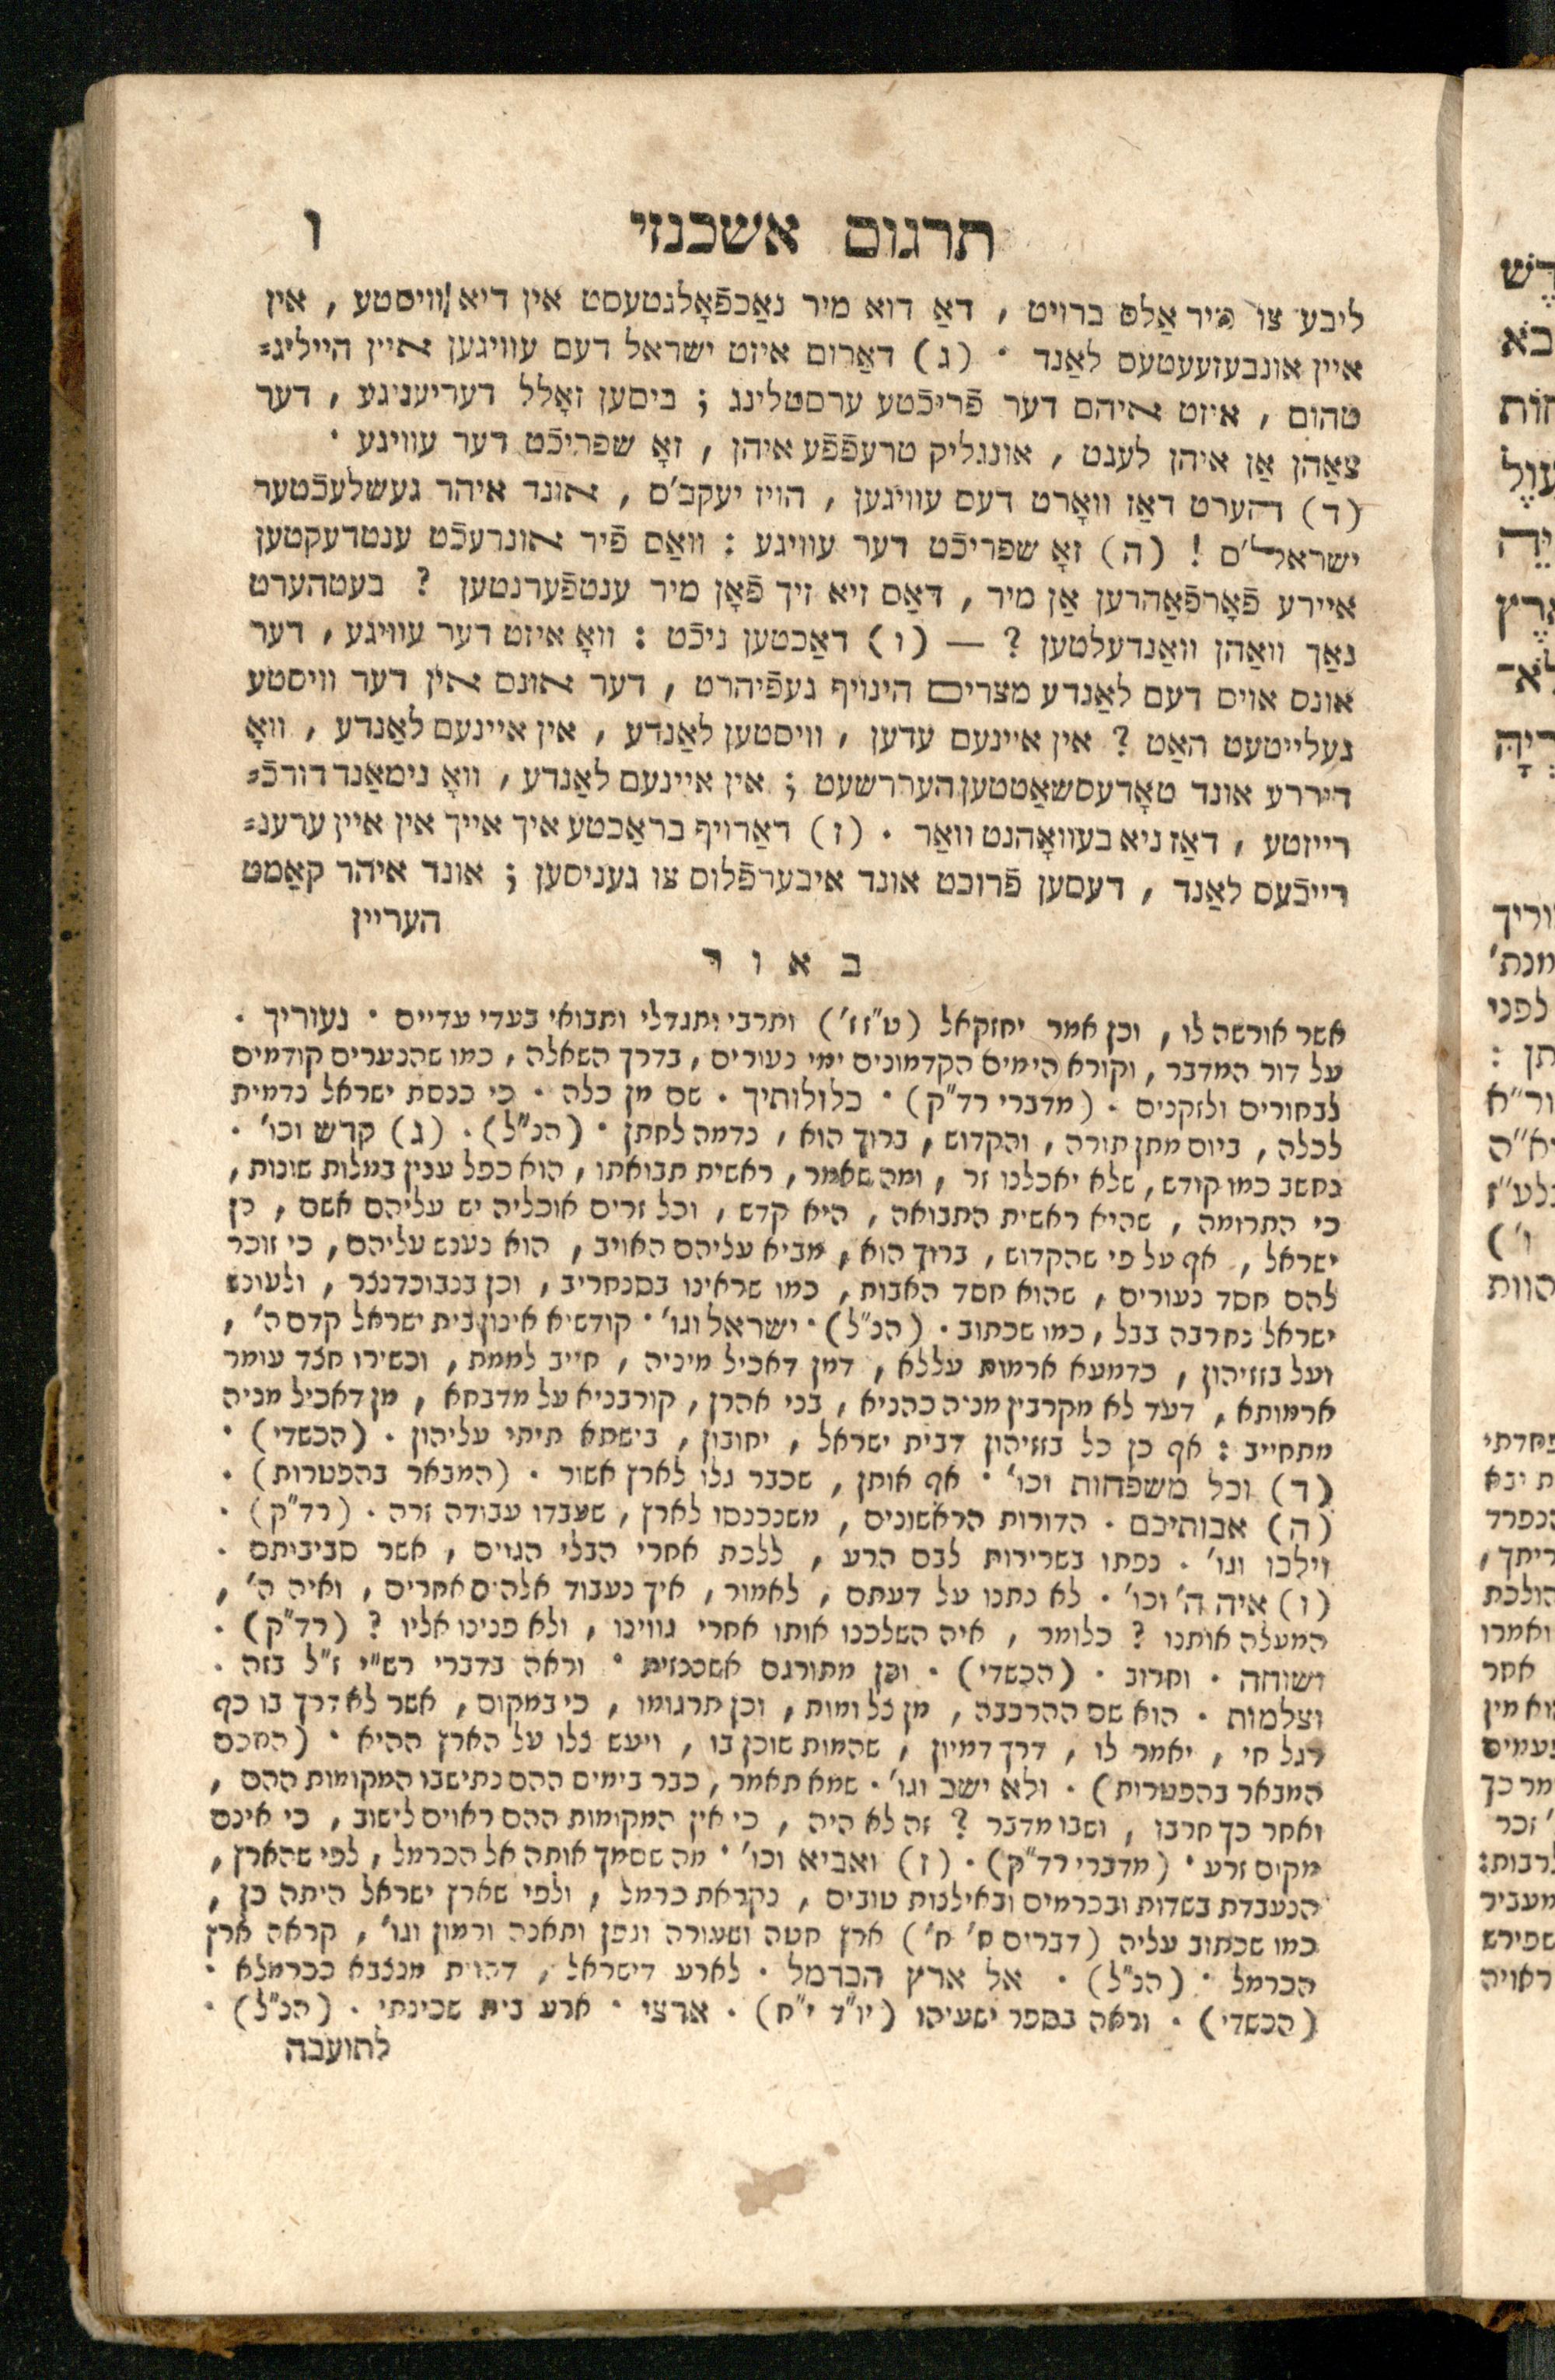 תרגום אשכנזי ו
ליבע צו מיר אַלס ברויט , דאַ דוא מיר נאַכפֿאָלגטעסט אין דיא וויסטע , אין
איין אונבעזעעטעס לאַנד . (ג) דאַרום איזט ישראל דעם עוויגען איין הייליג=
טהום , איזט איהם דער פֿריכֿטע ערסטלינג ; ביסען זאָלל דעריעניגע , דער
צאַהן אַן איהן לעגט , אונגליק טרעפֿפֿע איהן , זאָ שפריכֿט דער עוויגע .
(ד) הערט דאַז וואָרט דעס עוויגען , הויז יעקב'ס , אונד איהר געשלעכֿטער
ישראל'ס ! (ה) זאָ שפריכֿט דער עוויגע : וואַס פֿיר אונרעכֿט ענטדעקטען
איירע פֿאָרפֿאַהרען אַן מיר , דאַס זיא זיך פֿאָן מיר ענטפֿערנטען ? בעטהערט
נאַך וואַהן וואַנדעלטען ? — (ו) דאַכטען ניכֿט : וואָ איזט דער עוויגע , דער
אונס אויס דעם לאַנדע מצרים הינויף געפֿיהרט , דער אונס אין דער וויסטע
געלייטעט האַט ? אין איינעם עדען , וויסטען לאַנדע , אין איינעם לאַנדע , וואָ
דיררע אונד טאָדעסשאַטטען העררשעט ; אין איינעם לאַנדע , וואָ נימאַנד דורכֿ=
רייזטע , דאַז ניא בעוואָהנט וואַר . (ז) דאַרויף בראַכטע איך אייך אין איין ערענ=
רייכֿעס לאַנד , דעסען פֿרוכט אונד איבערפֿלוס צו געניסען ; אונד איהר קאַמט
העריין
באור
אשר אורשה לו , וכן אמר יחזקאל (ט"ז ז') ותרבי ותגדלי ותבואי בעדי עדיים . נעוריך .
על דור המדבר , וקורא הימים הקדמונים ימי נעורים , בדרך השאלה , כמו שהנערים קודמים
לבחורים ולזקנים . (מדברי רד"ק) . כלולותיך . שם מן כלה . כי כנסת ישראל נדמית
לכלה , ביום מתן תורה , והקדוש , ברוך הוא , נדמה לחתן . (הנ"ל) . (ג) קדש וכו' .
נחשב כמו קודש , שלא יאכלנו זר , ומה שאמר , ראשית תבואתו , הוא כפל ענין במלות שונות ,
כי התרומה , שהיא ראשית התבואה , היא קדש , וכל זרים אוכליה יש עליהם אשם , כן
ישראל , אף על פי שהקדוש , ברוך הוא , מביא עליהם האויב , הוא נענש עליהם , כי זוכר
להם חסד נעורים , שהוא חסד האבות , כמו שראינו בסנחריב , וכן בנבוכדנצר , ולעונש
ישראל נחרבה בבל , כמו שכתוב . (הנ"ל) . ישראל וגו' . קודשיא אינון בית ישראל קדם ה' ,
ועל בזזיהון , כדמעא ארמות עללא , דמן דאכיל מיניה , חייב לממת , וכשירו חצד עומר
ארמותא , דעד לא מקרבין מניה כהניא , בני אהרן , קורבניא על מדבחא , מן דאכיל מניה
מתחייב : אף כן כל בזזיהון דבית ישראל , יחובון , בישתא תיתי עליהון . (הכשדי) .
(ד) וכל משפחות וכו' . אף אותן , שכבר גלו לארץ אשור . (המבאר בהפטרות) .
(ה) אבותיכם . הדורות הראשונים , משנכנסו לארץ , שעבדו עבודה זרה . (רד"ק) .
וילכו וגו' . נפתו בשרירות לבם הרע , ללכת אחרי הבלי הגוים , אשר סביבותם .
(ו) איה ה' וכו' . לא נתנו על דעתם , לאמור , איך נעבוד אלהים אחרים , ואיה ה' ,
המעלה אותנו ? כלומר , איה השלכנו אותו אחרי גווינו , ולא פנינו אליו ? (רד"ק) .
ושוחה . וחרוב . (הכשדי) . וכן מתורגם אשכנזית . וראה בדברי רש"י ז"ל בזה .
וצלמות . הוא שם ההרכבה , מן צל ומות , וכן תרגומו , כי במקום , אשר לא דרך בו כף
רגל חי , יאמר לו , דרך דמיון , שהמות שוכן בו , ויעש צלו על הארץ ההיא . (החכם
המבאר בהפטרות) . ולא ישב וגו' . שמא תאמר , כבר בימים ההם נתישבו המקומות ההם ,
ואחר כך חרבו , ושבו מדבר ? זה לא היה , כי אין המקומות ההם ראוים לישוב , כי אינם
מקום זרע . (מדברי רד"ק) . (ז) ואביא וכו' . מה שסמך אותה אל הכרמל , לפי שהארץ ,
הנעבדת בשדות ובכרמים ובאילנות טובים , נקראת כרמל , ולפי שארץ ישראל היתה כן ,
כמו שכתוב עליה (דברים ח' ח') ארץ חטה ושעורה וגפן ותאנה ורמון וגו' , קראה ארץ
הכרמל . (הנ"ל) . אל ארץ הכרמל . לארע דישראל , דהות מנצבא ככרמלא .
(הכשדי) . וראה בספר ישעיהו (יו"ד י"ח) . ארצי . ארע בית שכינתי . (הנ"ל) .
לתועבה